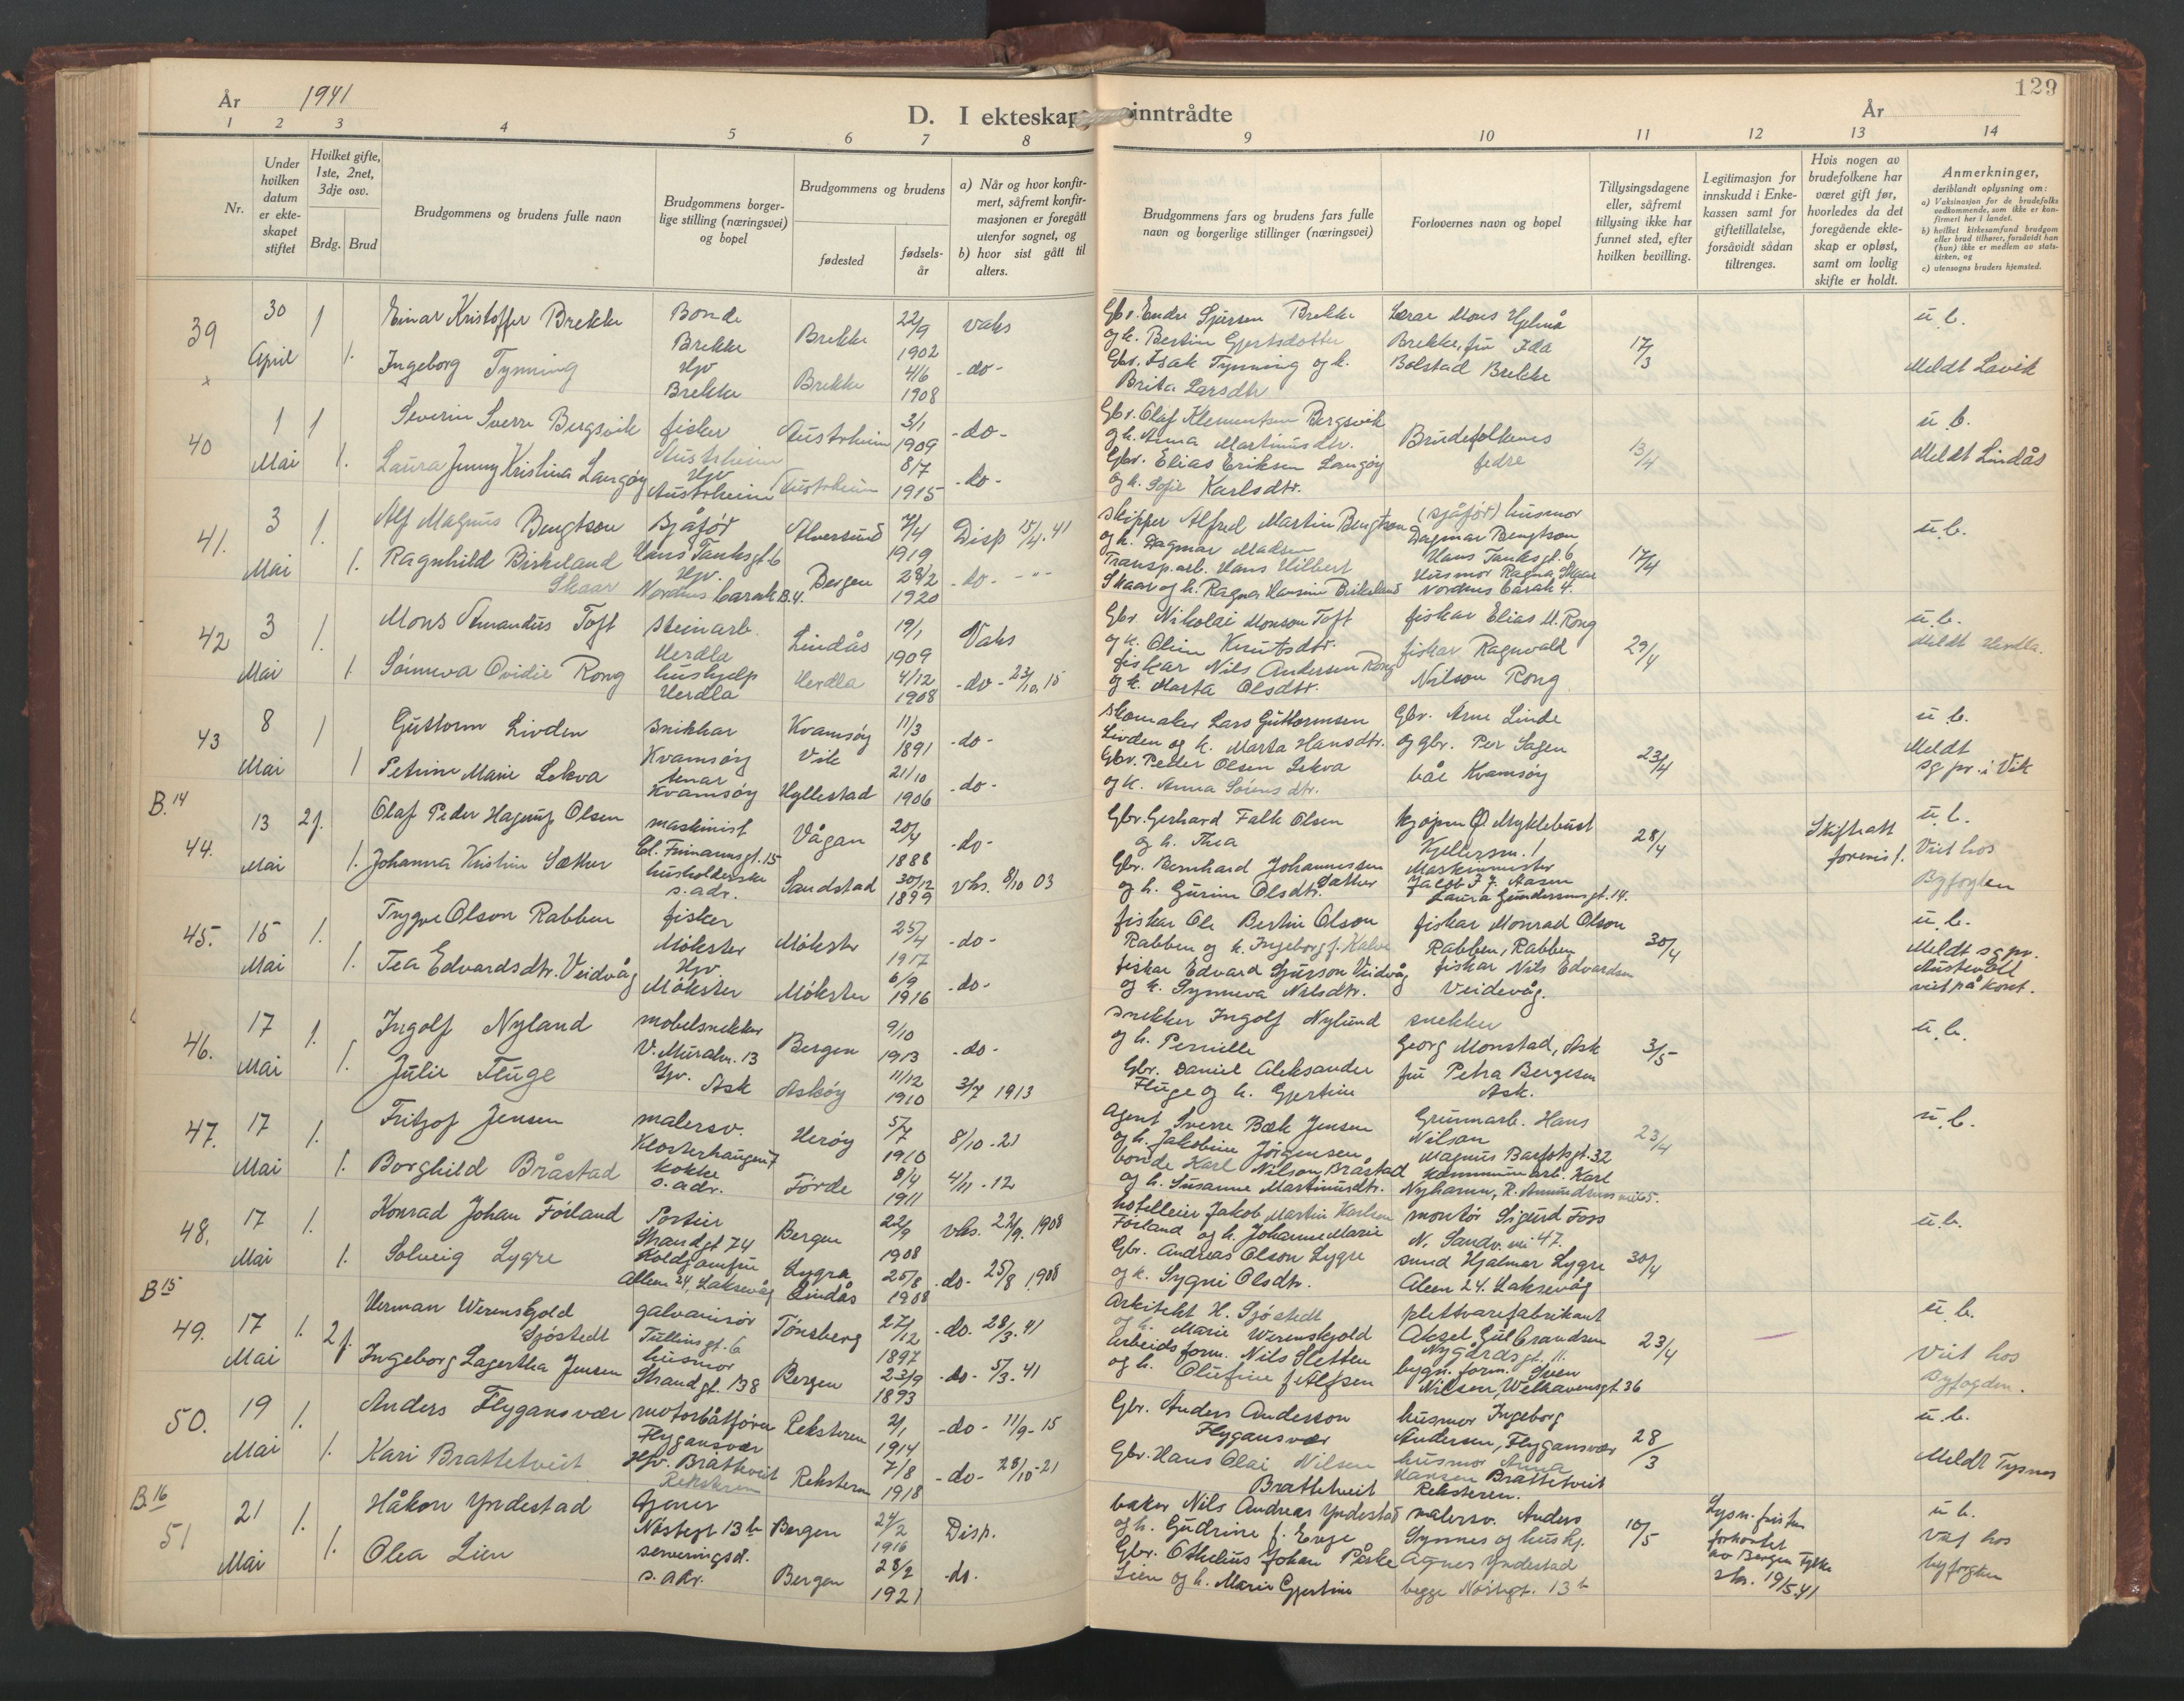 År 1941
D. I ekteskap inntrådte
År
129
1 2 3 4 5 6 7 8 9 10 11 12 13 14
Nr.
Under hvilken datum er ekteskapet stiftet
Hvilket gifte, 1ste, 2net, 3dje osv.
Brdg. Brud
Brudgommens og brudens fulle navn
Brudgommens borgerlige stilling (næringsvei) og bopel
Brudgommens og brudens
fødested
fødselsår
a) Når og hvor konfirmert, såfremt konfirmasjonen er foregått utenfor sognet, og
b) hvor sist gått til alters.
Brudgommens fars og brudens fars fulle navn og borgerlige stillinger (næringsvei)
Forlovernes navn og bopel
Tillysingsdagene eller, såfremt tillysing ikke har funnet sted, efter hvilken bevilling.
Legitimasjon for innskudd i Enkekassen samt for giftetillatelse, forsåvidt sådan tiltrenges.
Hvis nogen av brudefolkene har været gift før, hvorledes da det foregående ekteskap er opløst, samt om lovlig skifte er holdt.
Anmerkninger, deriblandt oplysning om:
a) Vaksinasjon for de brudefolks vedkommende, som ikke er konfirmert her i landet.
b) hvilket kirkesamfund brudgom eller brud tilhører, forsåvidt han (hun) ikke er medlem av statskirken, og
c) utensogns bruders hjemsted.
39 30 April 1 1.
Einar Kristoffer Brekke Bonde Brekke Brekke 22/9 1902 vaks
Ingeborg Tynning Hjv Brekke Brekke 4/6 1908 -do-
Gbr. Endre Sjursen Brekke
og k. Bertin Gjertsdotter
Gbr. Isak Tynning og k.
Brita Larsdtr
Lærar Mons Hjelmå
Brekke, fru Ida
Bolstad Brekke
17/3
u.b.
Meldt Lavik
40 1 Mai 1 1.
Severin Sverre Bergsvik fisker Austrheim Austrheim 3/1 1909 -do-
Laura Jenny Kristina Langøy Hjv Austrheim Austrheim 8/7 1915 -do-
Gbr. Olaf Klementsen Bergsvik
og k. Anna Martinusdtr.
Gbr. Elias Eriksen Langøy
og k. Sofie Karlsdtr.
Brudefolkenes
fedre
13/4
u.b.
Meldt Lindås
41. 3 Mai 1. 1.
Alf Magnus Bengtson Sjåfør Hans Tanksgt. 6 Alversund 7/4 1919 Disp 15/4.41
Ragnhild Birkeland Skaar Hjv. Nordnes barak B.4. Bergen 28/2 1920 -do- -"-
Skipper Alfred Martin Bengtson
og k. Dagmar Madsen
Transp.arb. Hans Hilbert
Skaar og k. Ragna Hansine Birkeland
(sjåfør) husmor
Dagmar Bengtson
Hans Tanksgt. 6
Husmor Ragna Skaar
Nordnes barak 4.
17/4
u.b.
42 3 Mai 1. 1.
Mons Amandus Toft steinarb. Herdla Lindås 19/1 1909 Vaks
Sønneva Ovidie Rong hushjelp Herdla Herdla 4/12 1908 -do- 23/10.15
Gbr. Nikolai Monson Toft
og k. Oline Knutsdtr.
fiskar Nils Andersen Rong
og k. Marta Olsdtr.
fiskar Elias M. Rong
fiskar Ragnvald
Nilson Rong
29/4
u.b.
Meldt Herdla.
43 8 Mai 1 1
Guttorm Livden Snikkar Kvamsøy Kvamsøy Vik 11/3 1891 -do-
Petrine Marie Lekva Kvamsøy Hyllestad 21/10 1906 -do-
Skomaker Lars Guttormsen
Livden og k. Marta Hansdtr.
Gbr. Peder Olsen Lekva
og k. Anna Sørensdtr.
Gbr. Arne Linde
og gbr. Per Sagen
båe Kvamsøy
23/4
u.b.
Meldt
sg pr. i Vik
B.14
44. 13 Mai 2f. 1.
Olaf Peder Hagerup Olsen maskinist Vågan 20/4 1888 -do-
Johanna Kristine Sæther husholderske s. adr. Sandstad 30/12 1899 vks. 8/10 03
Gbr. Gerhard Falk Olsen
og k. Thea
Gbr. Bernhard Johannessen Sæther
og k. Gurine Olsdtr.
kjøpm Ø. Myklebust
Kjellersm. 1
Maskinmester
Jakob F. J. Aasen
Laura Gundersensgt. 14.
28/4
Skifteatt
forevist.
u.b.
Viet hos
Byfogden
45. 15 Mai 1. 1.
Trygve Olson Rabben fisker Møkster Møkster 25/4 1917 -do-
Tea Edvardsdtr. Veidvåg Hjv. Møkster Møkster 6/9 1916 -do-
fiskar Ole Bertin Olson
Rabben og k. Ingeborg f. Kalve
fiskar Edvard Sjurson Veidvåg
og k. Synneva Nilsdtr.
fiskar Monrad Olson
Rabben, Rabben
fiskar Nils Edvardsen
Veidevåg.
30/4
u.b.
Meldt sg pr.
Austevoll
viet på kont.
46. 17 Mai 1. 1.
Ingolf Nyland møbelsnekker V. Muralm. 13 Bergen 9/10 1913 -do-
Julie Fluge Hjv. Ask Askøy 11/12 1910 3/7 1913
Snekker Ingolf Nylund
og k. Pernille
Gbr. Daniel Aleksander
Fluge og k. Gjertine
snekker
Georg Monstad, Ask
fru Petra Bergesen
Ask.
3/5
u.b.
47. 17 Mai 1. 1.
Fritjof Jensen malersv. Klosterhaugen 7 Herøy 5/7 1910 8/10-21
Borghild Bråstad kokke s. adr. Førde 8/4 1911 4/11-12
Agent Sverre Bæk Jensen
og k. Jakobine Jørgensen
bonde Karl Nilsen Bråstad
og k. Susanne Martinusdtr.
Grunnarb. Hans
Nilsen
Magnus Barfotsgt. 32
Kommunearb. Karl
Nyhamn, R. Amundsens vei 65.
23/4
u.b.
48. 17 Mai 1. 1.
Konrad JohanFørland Portier Strandgt. 74 Bergen 22/9 1908 vks. 22/9. 1908
Solveig Lygre Koldjomfru Alleen 24, Laksevåg Lygra Lindås 25/8 1908 -do- 25/8 1908
hotelleier Jakob Martin Karlsen
Førland og k. Johanne Marie
Gbr. Andreas Olson Lygre
og k. Sygni Olsdtr.
montør Sigurd Foss
N. Sandv. vei 47.
smed Hjalmar Lygre
Aleen 24. Laksevåg
30/4
u.b.
B 15
49. 17 Mai 1. 2f.
Herman Werenskjold Sjöstedt galvanisør Tullinsgt. 6 Tønsberg 27/12 1897 -do. 28/3.41
Ingeborg Lagertha Jensen husmor Strandgt. 138 Bergen 23/9 1893 -do- 5/3.41
Arkitekt H. Sjöstedt
og k. Marie Werenskjold
Arbeidsform. Nils Sletten
og k. Olufine f. Alfsen
plettvarefabrikant
Aksel Gulbrandsen
Nygårdsgt. 11.
bygn. form. Sven
Nilsen, Welhavensgt. 36
23/4
u.b.
Viet hos
Byfogden.
50. 19 Mai 1. 1.
Anders Flygansvær motorbåtfører Flygansvær Reksteren 2/1 1914 -do- 11/9-15
Kari Brattetveit Hjv. Brattetveit Reksteren Reksteren 7/8 1918 -do- 28/10-21
Gbr. Anders Anderson
Flygansvær
Gbr. Hans Olai Nilsen
Brattetveit
husmor Ingeborg
Andersen, Flygansvær
husmor Anna
Hansen Brattetveit
Reksteren.
28/3
u.b.
Meldt Tysnes
B.16
51 21 Mai 1. 1.
Håkon Yndestad Gjører Nøstegt 13b Bergen 24/2 1916 Disp.
Olea Lien serveringsd. s. adr. Bergen 28/2 1921 -do.
baker Nils Andreas Yndestad
og k. Gudrine f. Evje
Gbr. Othelius Johan Påske
Lien og k. Marie Gjertine
malersv. Anders
Synnes og hushj.
Agnes Yndestad
begge Nøstegt. 13b
10/5
Lysn. fristen
forkortet
av Bergen Fylke
skr. 19/5.41
u.b.
Viet hos
byfogden